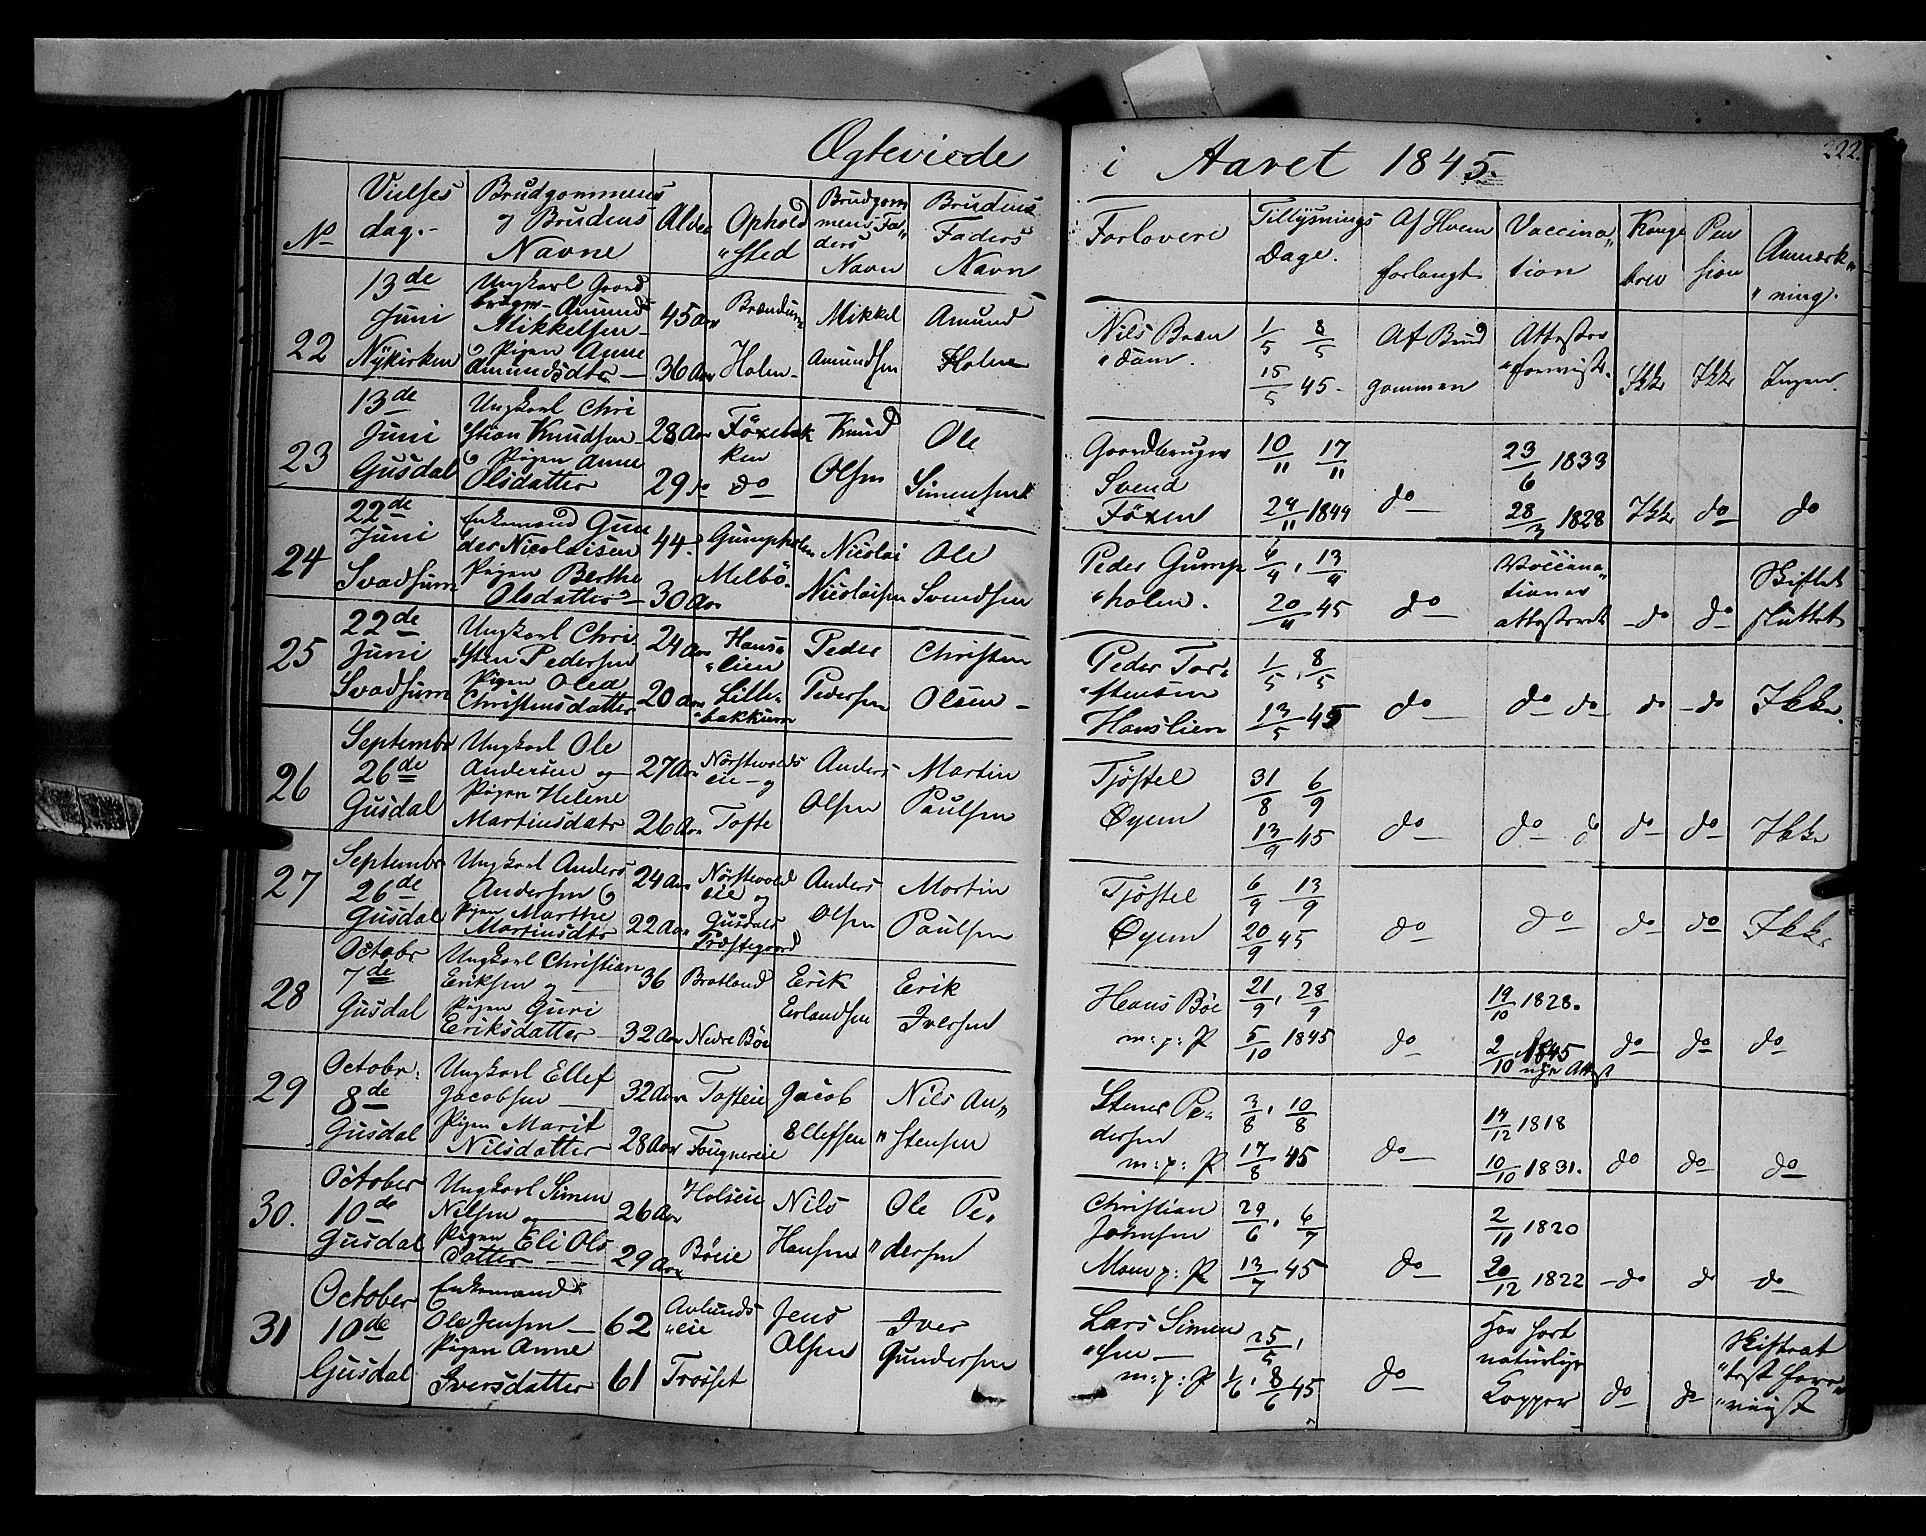 Ægteviede i Aaret 1845.
222.
No
Vielses dag.-
Brudgommens og Brudens Navne
Alder
Ophold "sted
Brudgom mens Fa" ders Navn
Brudens Faders Navn
Forlovere
Tillysnings Dage.
Af Hvem forlangt
Vaccina" tion
Konge brev
Pen sion
Anmærk" "ning.
22
13de Juni Nÿkirken
Ungkarl Gaard bruger Amund Mikkelsen
og Pigen Anne Amundsdtr
45 Aar
36 Aar
Brændum
Holen-
Mikkel Amundsen
Amund Holen
Nils Bræn "dum.
1/5 8/5
15/5 45-
Af Brud gommen
Attester "forevist.
Ikke
Ikke
Ingen.
23
13de Juni Gusdal
Ungkarl Chri stian Knudsen
og Pigen Anne Olsdatter
28 Aar
29 do
Föxebak ken
do
Knud Olsen
Ole Simensen
Gaardbruger Svend Föxen
10/11 17/11
24/11 1844
do
23/6 1833
28/3 1828
Ikke
do
do
24
22de Juni Svadsum
Enkemand Gun der Nicolaisen
Pigen Berthe Olsdatter
44.
30 Aar
Gumpholen
Melbö.
Nicolai Nicolaisen
Ole Svendsen
Peder Gump "holen.
6/4, 13/4
20/4 45
do
Vaccina" tionen attesteret
do
do
Skiftet sluttet
25
22de Juni Svadsum
Ungkarl Chri "sten Pedersen
Pigen Olea Christensdatter
24 Aar
20 Aar
Hans= "lien
Lille= "bakkum
Peder Pedersen
Christen Olsen
Peder Tor= "stensen Hanslien
1/5, 8/5
13/5 45
do
do do
do
do
Ikke.
26
Septembr 26de Gusdal
Ungkarl Ole Andersen og
Pigen Helene Martinsdatr
27 Aar
26 Aar
Nörstevolds eie og
Tofte
Anders Olsen
Martin Paulsen
Tjöstel Öyen
31/8 6/9
13/9 45
do
do do
do
do
Ikke
27
Septembr 26de Gusdal
Ungkarl Anders Andersen og
Pigen Marthe Martinsdtr
24 Aar
22 Aar
Nörstevold eie og
Gusdals Præstegaard
Anders Olsen
Martin Paulsen
Tjöstel Öyen
6/9 13/9
20/9 45
do
do
do
do
Ikke
28
Octobr 7de Gusdal
Ungkarl Christian Eriksen og
Pigen Guri Eriksdatter
36
32 Aar
Bratland
Nedre Böe
Erik Erlandsen
Erik Iversen
Hans Böe m: p: P
21/9, 28/9
5/10 1845
do
19/10 1828.
2/10 1845 nye Attest
do
do
do
29
Octobr: 8de Gusdal
Ungkarl Ellef Jacobsen
Pigen Marit Nilsdatter
32 Aar
28 Aar
Tofteie
Fougnereie
Jacob Ellefsen
Nils An" "stensen
Stener Pe= dersen m: p: P
3/8, 10/8
17/8 45
do
14/12 1818
10/10 1831.
do
do
do
30.
October 10de Gusdal
Ungkarl Simen Nilsen og
Pigen Eli Ols datter
26 Aar
29 Aar
Holseie
Böeie
Nils Hansen
Ole Pe= "dersen
Christian Johnsen Moen p: P
29/6, 6/7
13/7 45
do
2/11 1820
20/12 1822
do
do
do
31
October 10de Gusdal
Enkemand Ole Jensen
Pigen Anne Iversdatter
62
61
Aulunds "eie
Troset
Jens Olsen
Iver Gundersen
Lars Simen "sen m: p: P
25/5,
1/6, 8/6 45
do
Har havt naturlige Kopper
do
do
Skifteat "test fore "viist